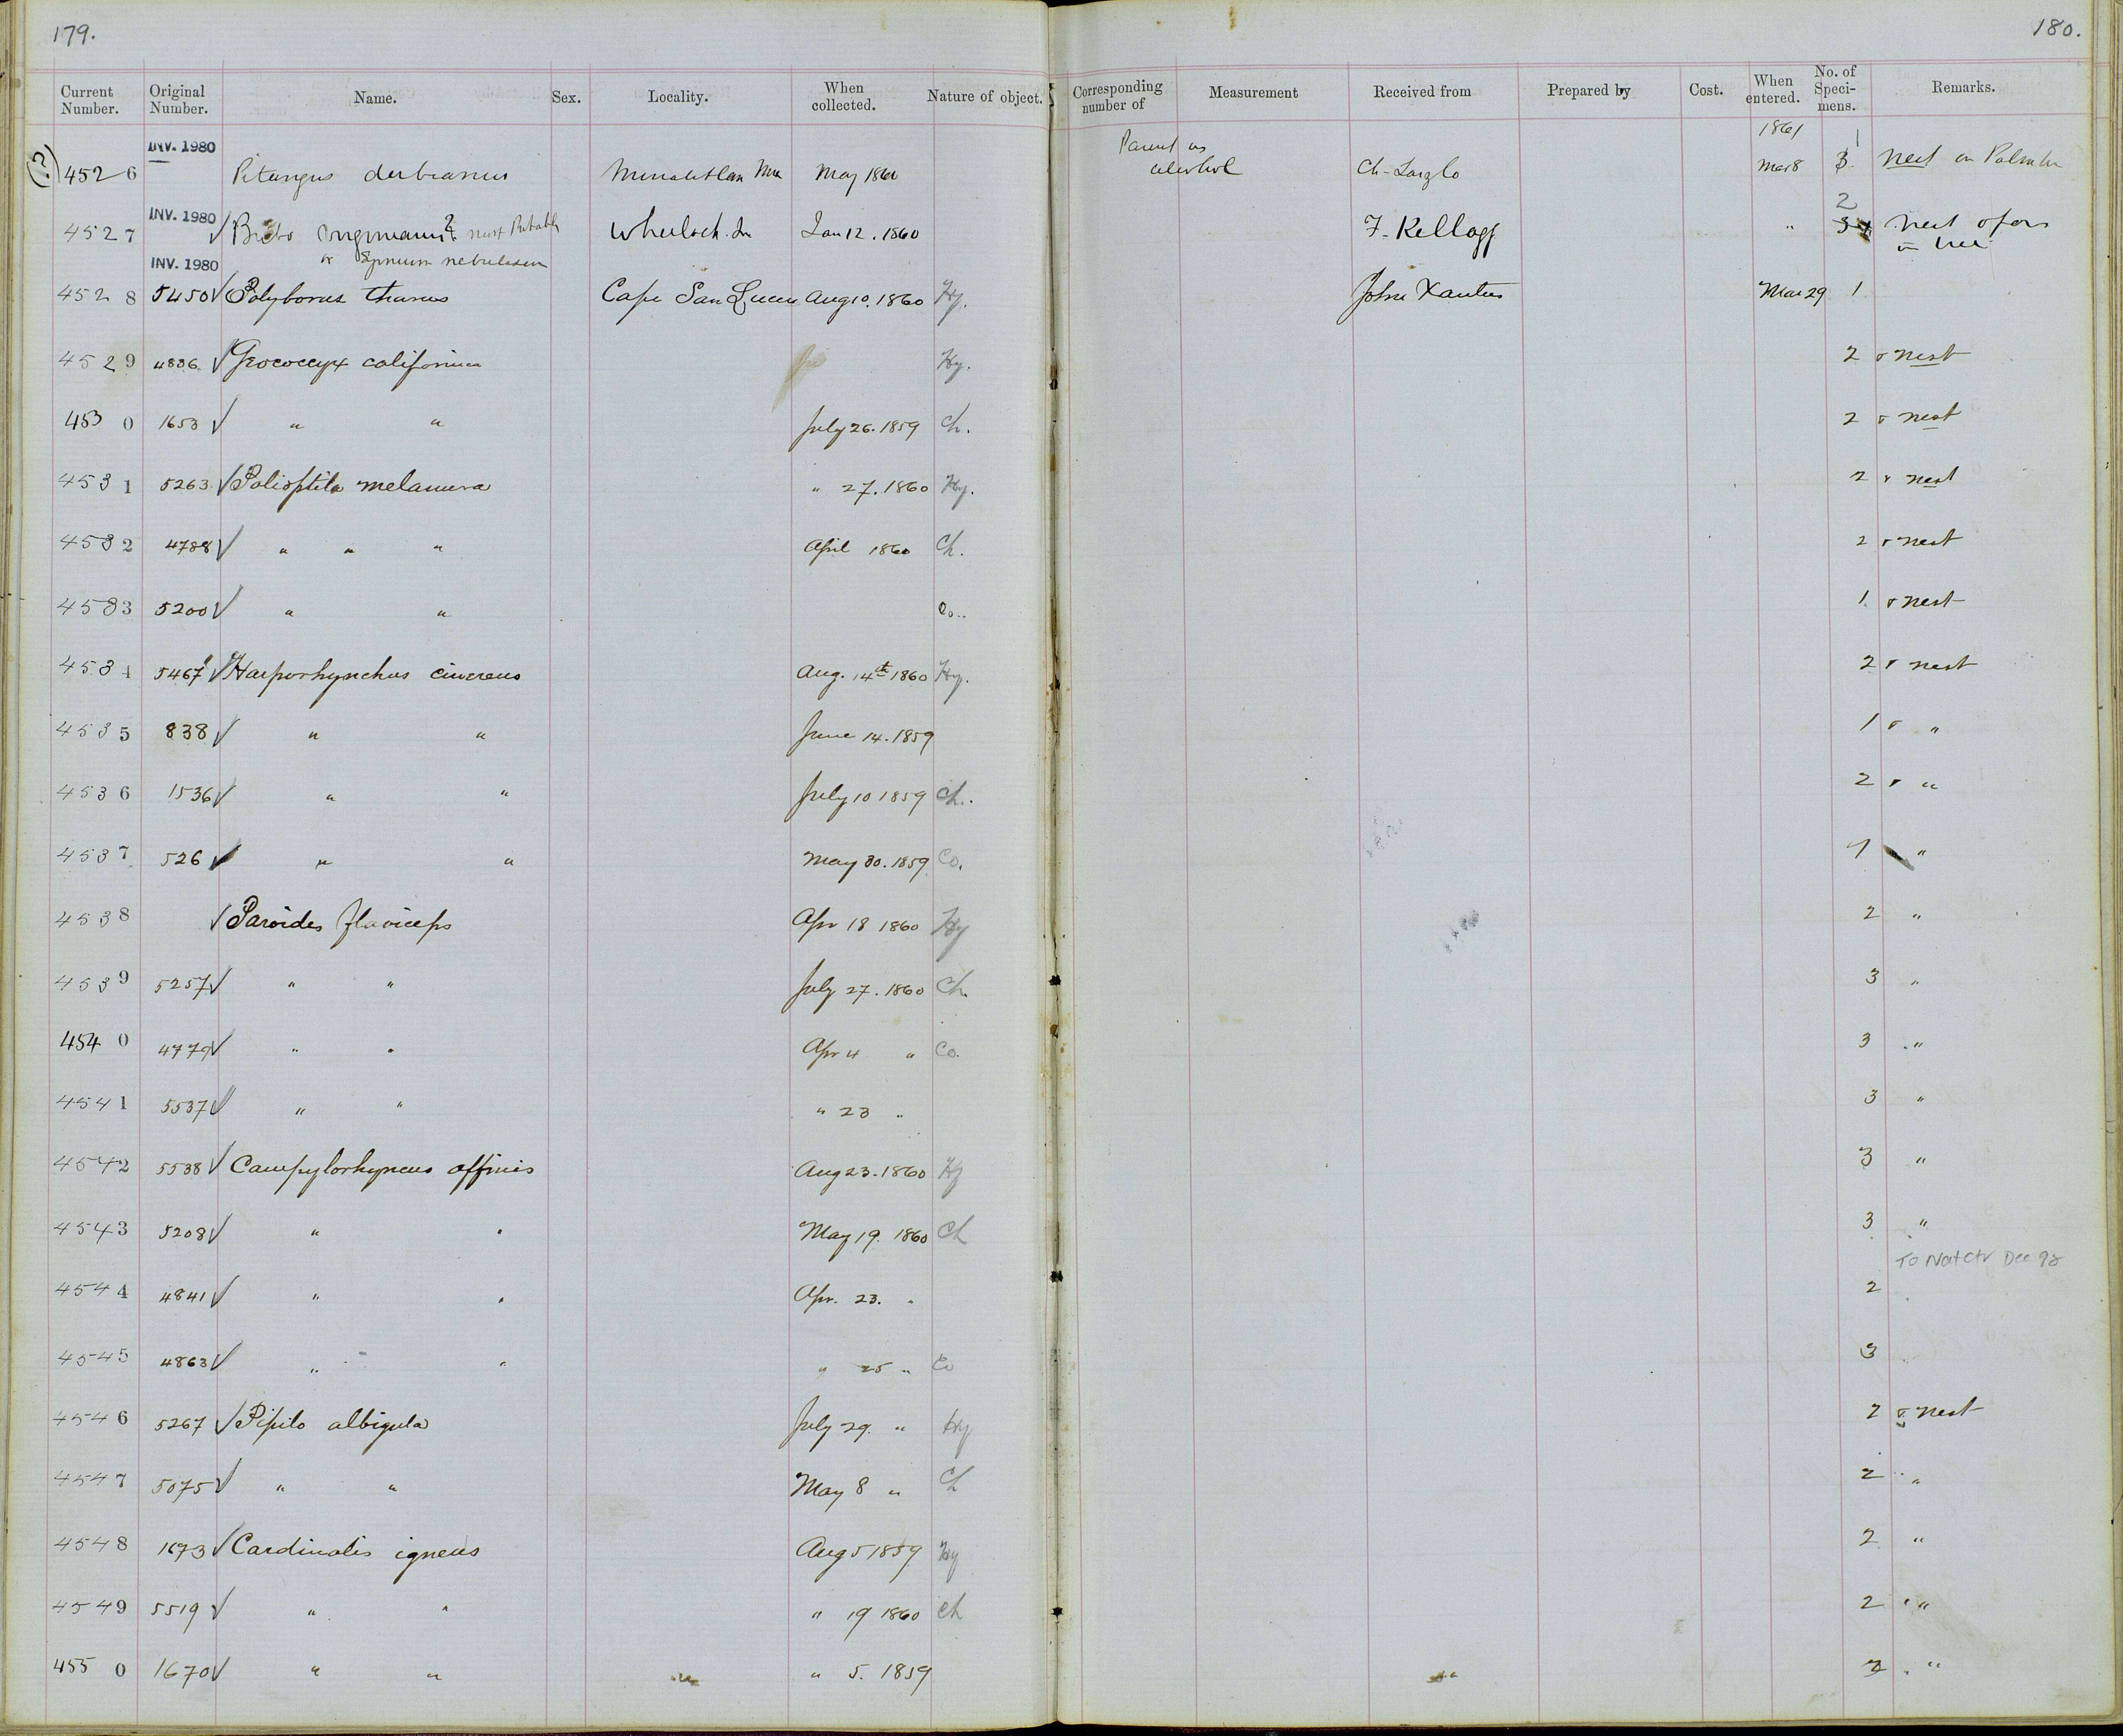 179.
180.
Current Number. Original Number. Name. Sex. Locality. When collected. Nature of object. Corresponding number of Measurement Received from Prepared by Cost. When entered. No. of Specimens. Remarks.
INV. 1980 Parent in 1861 1
(?) 4526 Pitangus derbianus Minatitlan Mex May 1860 alcohol Ch. Laszlo Mar 8 3 nest on Palm
INV. 1980 2
4527 √ Bubo virginianus? most Probably Wheelock. Jan 12. 1860 F. Kellogg " 3 nest
INV. 1980 or Syrnium nebulosum in tree
4528 5450 √ Polyborus tharus Cape San Lucas Aug 10. 1860 Hy. John Xantus Mar 29 1
4529 4836 √ Geococcyx californicus Hy. 2 & nest
4530 1653 √ " " July 26. 1859 Ch. 2 & nest
4531 5263 √ Polioptila melanura " 27. 1860 Hy. 2 & nest
4532 4788 √ " " " April 1860 Ch. 2 & nest
4533 5200 √ " " Co.. 1 & nest
4534 5467 √ Harporhynchus cinereus Aug. 14th 1860 Hy. 2 & nest
4535 838 √ " " June 14. 1859 1 & "
4536 1536 √ " " July 10 1859 Ch.. 2 & "
4537 526 √ " " May 30. 1859 Co. "
4538 √ Paroides flaviceps Apr 18 1860 Hy 2 "
4539 5257 √ " " July 27. 1860 Ch. 3 "
4540 4779 √ " " Apr 4 " Co. 3 "
4541 5537 √ " " " 23 " 3 "
4542 5538 √ Campylorhyncus affinis Aug 23. 1860 Hy 3 "
4543 5208 √ " " May 19. 1860 Ch 3 "
To NatCtr Dec 98
4544 4841 √ " " Apr. 23. " 2
4545 4863 √ " " " 25 " Co 3
4546 5267 √ Pipilo albigula July 29. " Hy 2 & nest
4547 5075 √ " " May 8 " Ch 2 "
4548 1673 √ Cardinalis igneus Aug 5 1859 Hy 2 "
4549 5519 √ " " " 19 1860 Ch 2 " "
4550 1670 √ " " " " 5. 1859 " "